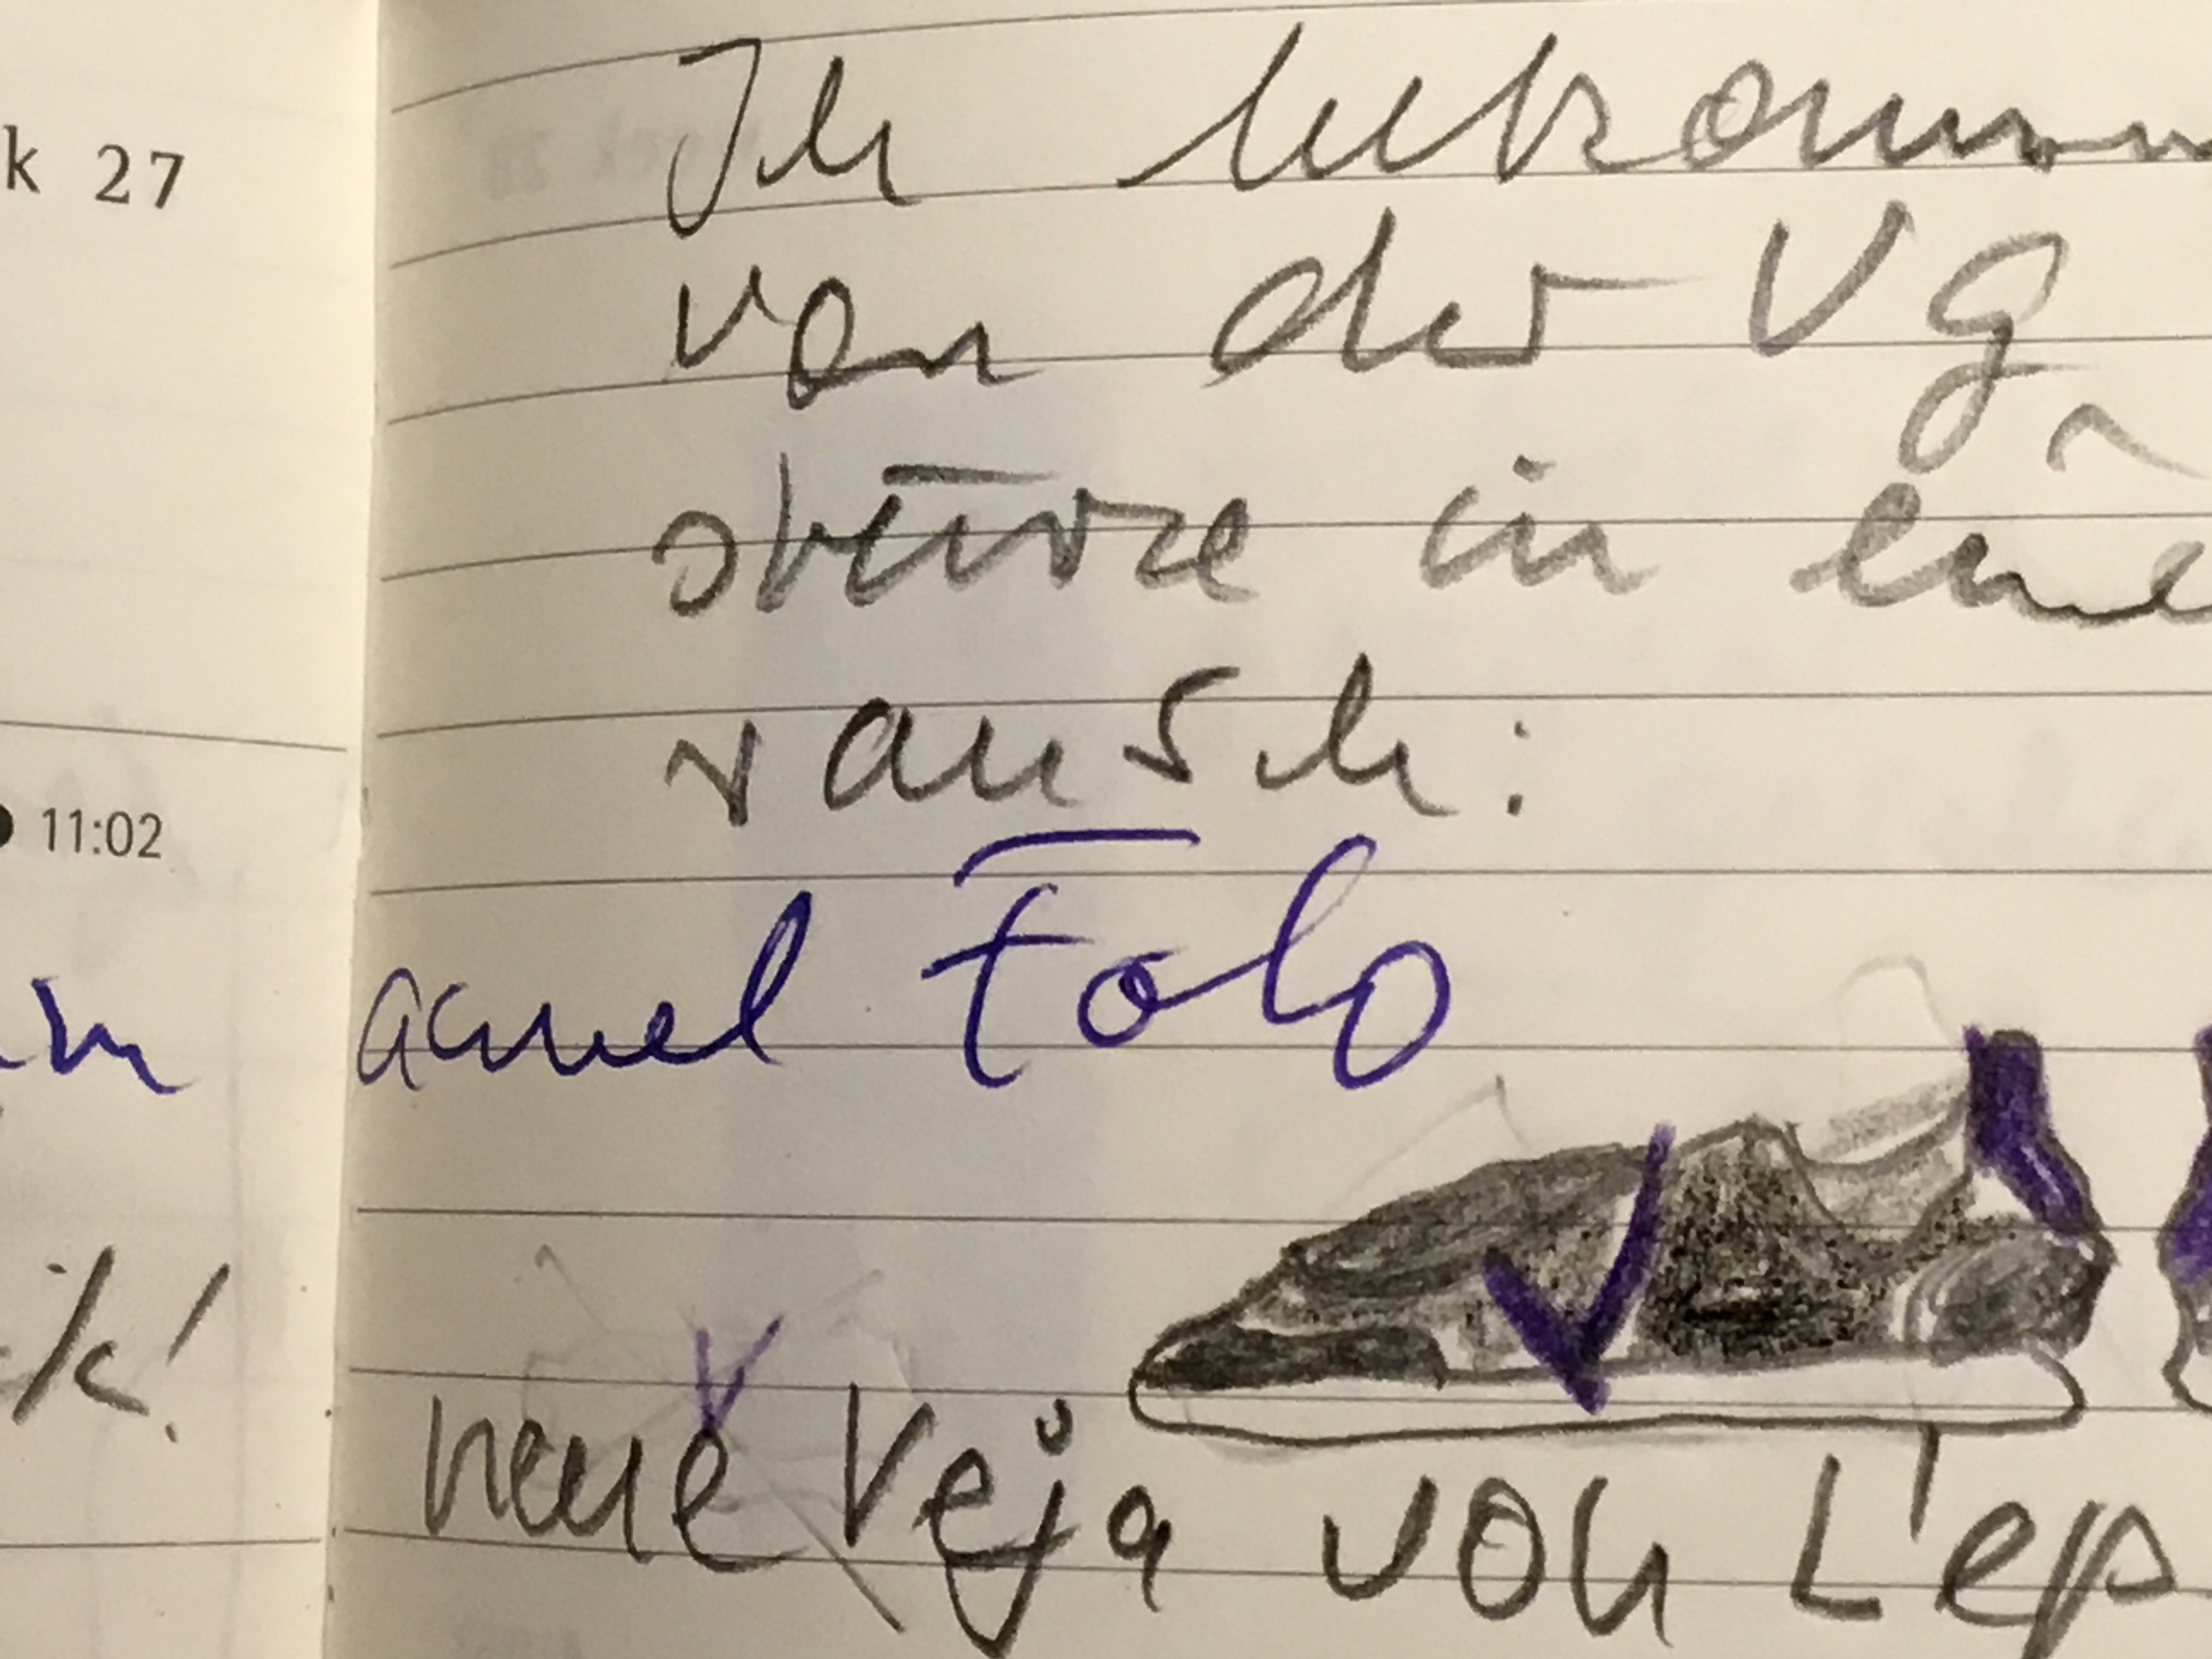 k 27
11:02
k!
Ich bekomm
von der VG
stürze in eine
rausch:
Foto
neue Veja von L'ep